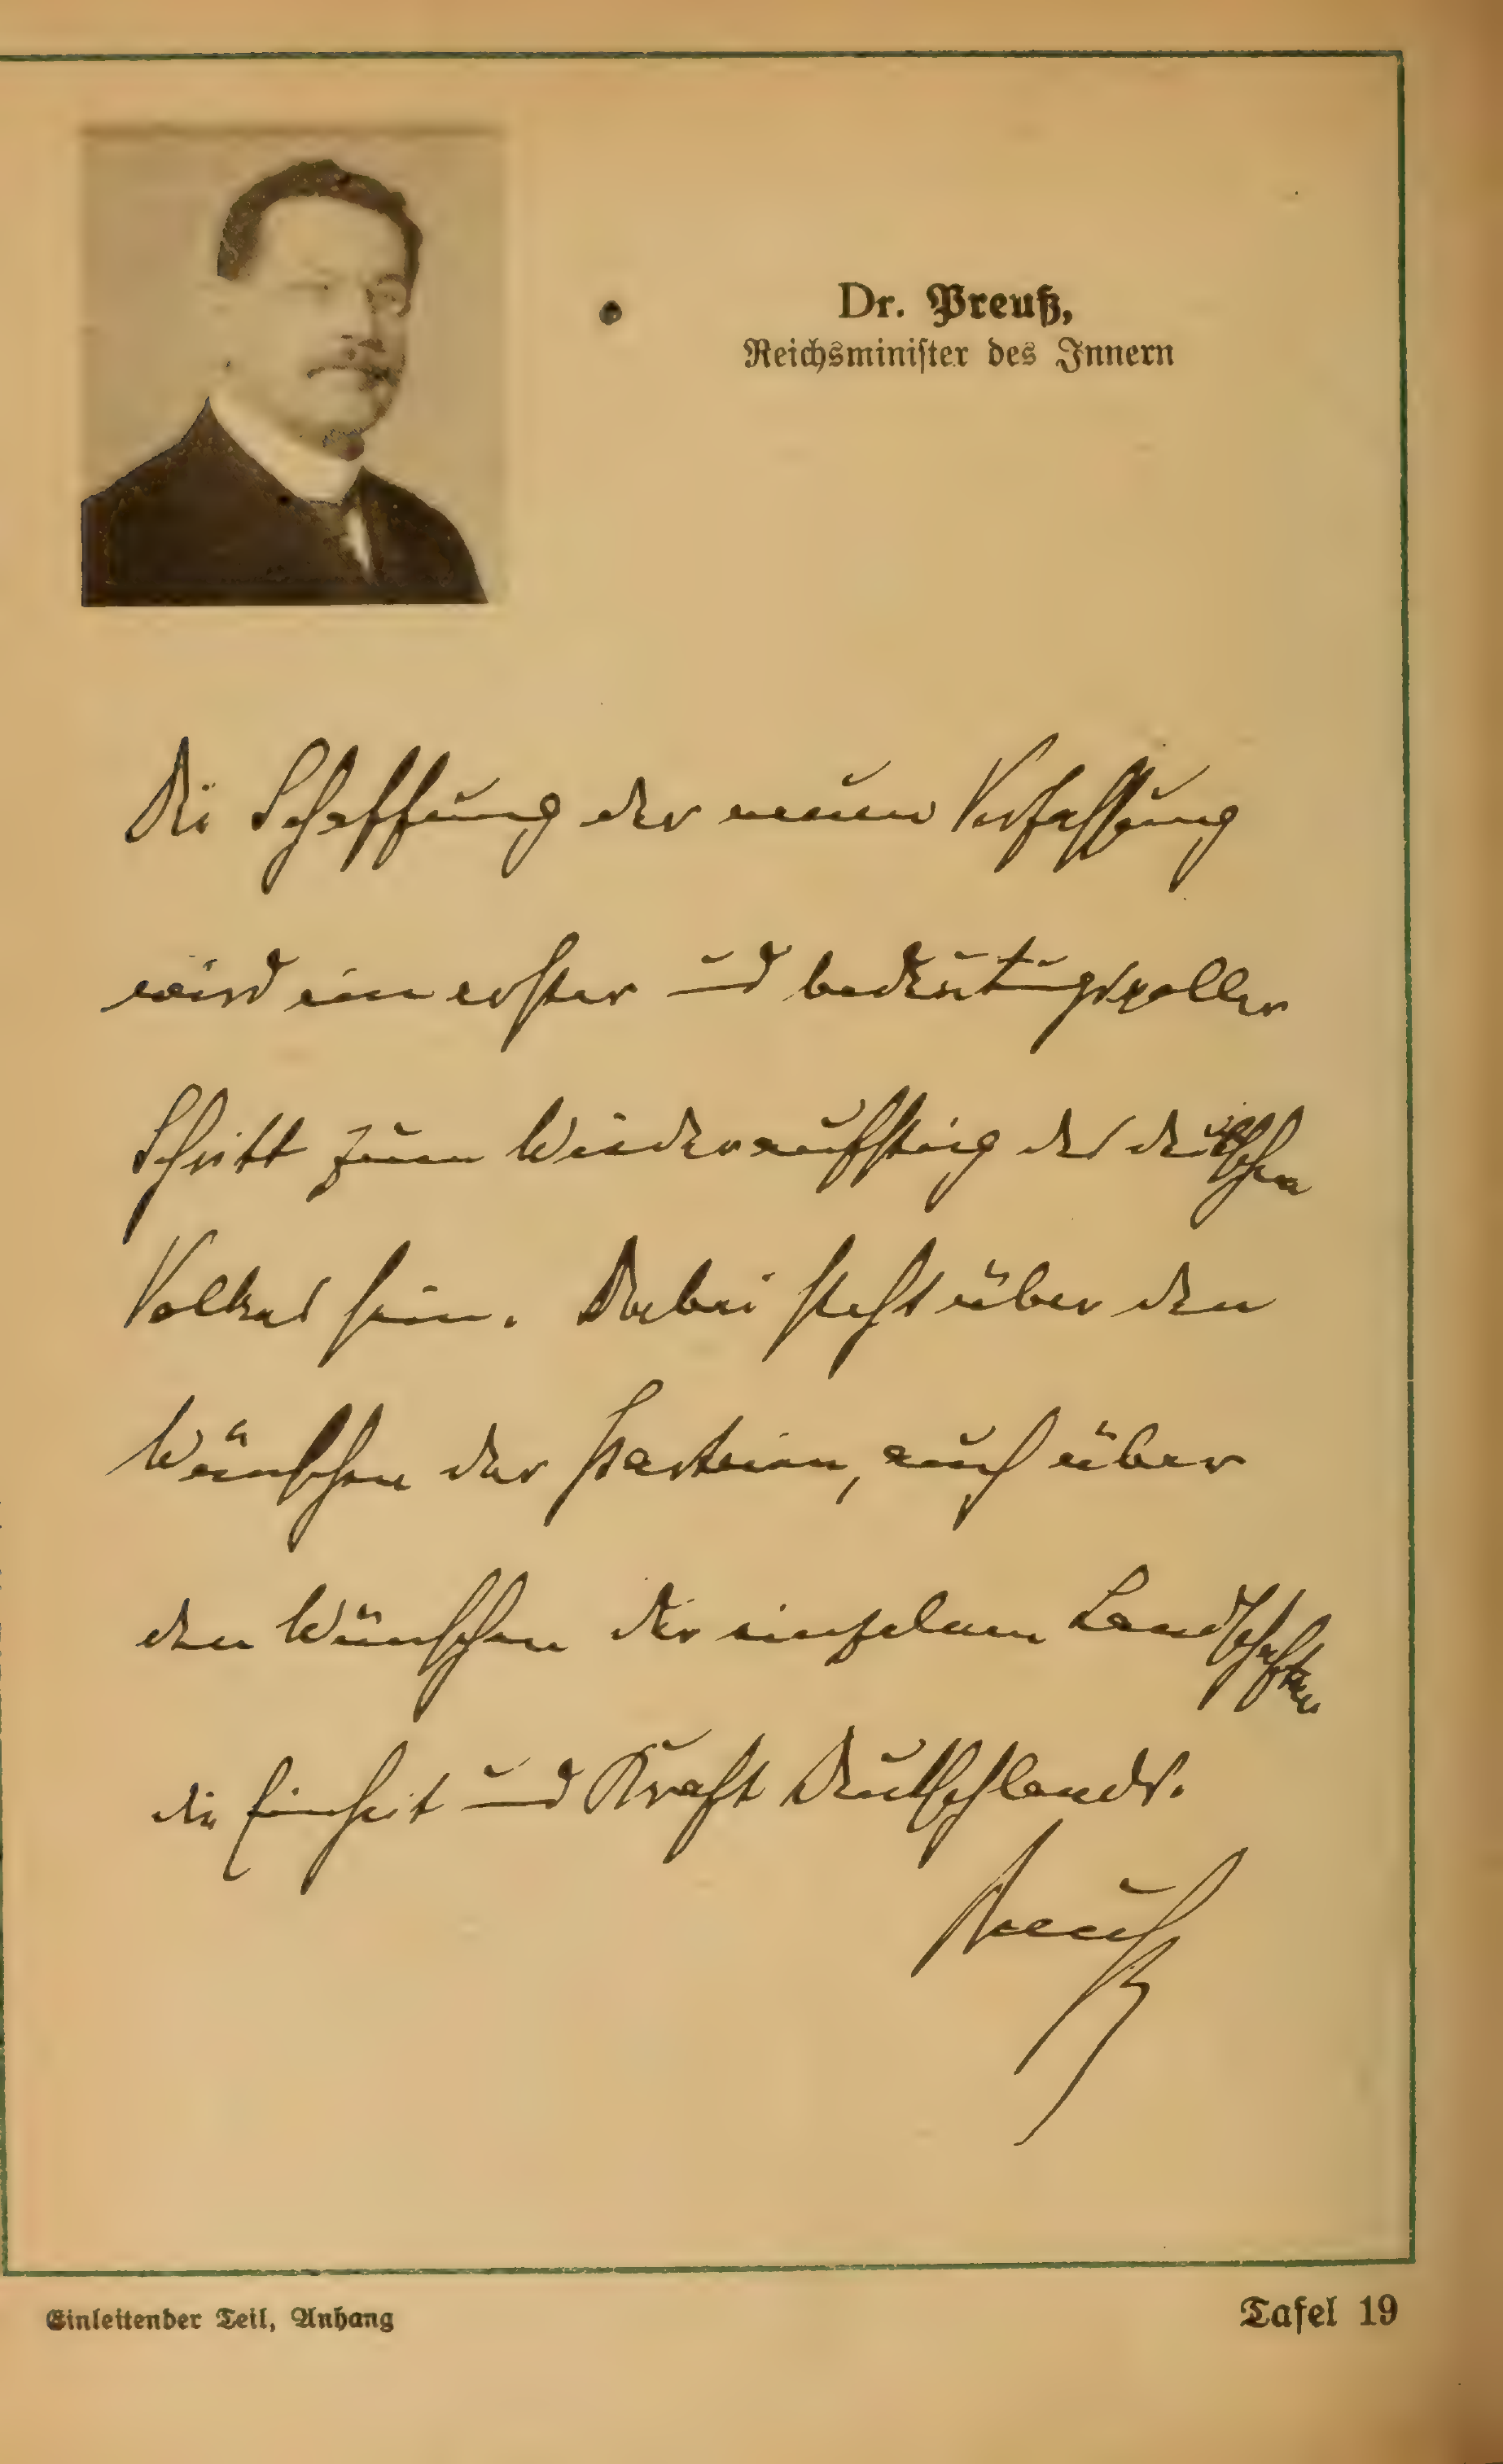 Dr. Preuß,
Reichsminister des Innern
Die Schaffung der neuen Verfassung
wird ein erster und bedeutungsvoller
Schritt zum Wiederaufstieg des deutschen
Volkes sein. Dabei steht über den
Wünschen der Parteien, auch über
den Wünschen der einzelnen Landschaften
die Einheit und Kraft Deutschlands.
Preuß
Einleitender Teil, Anhang
Tafel 19